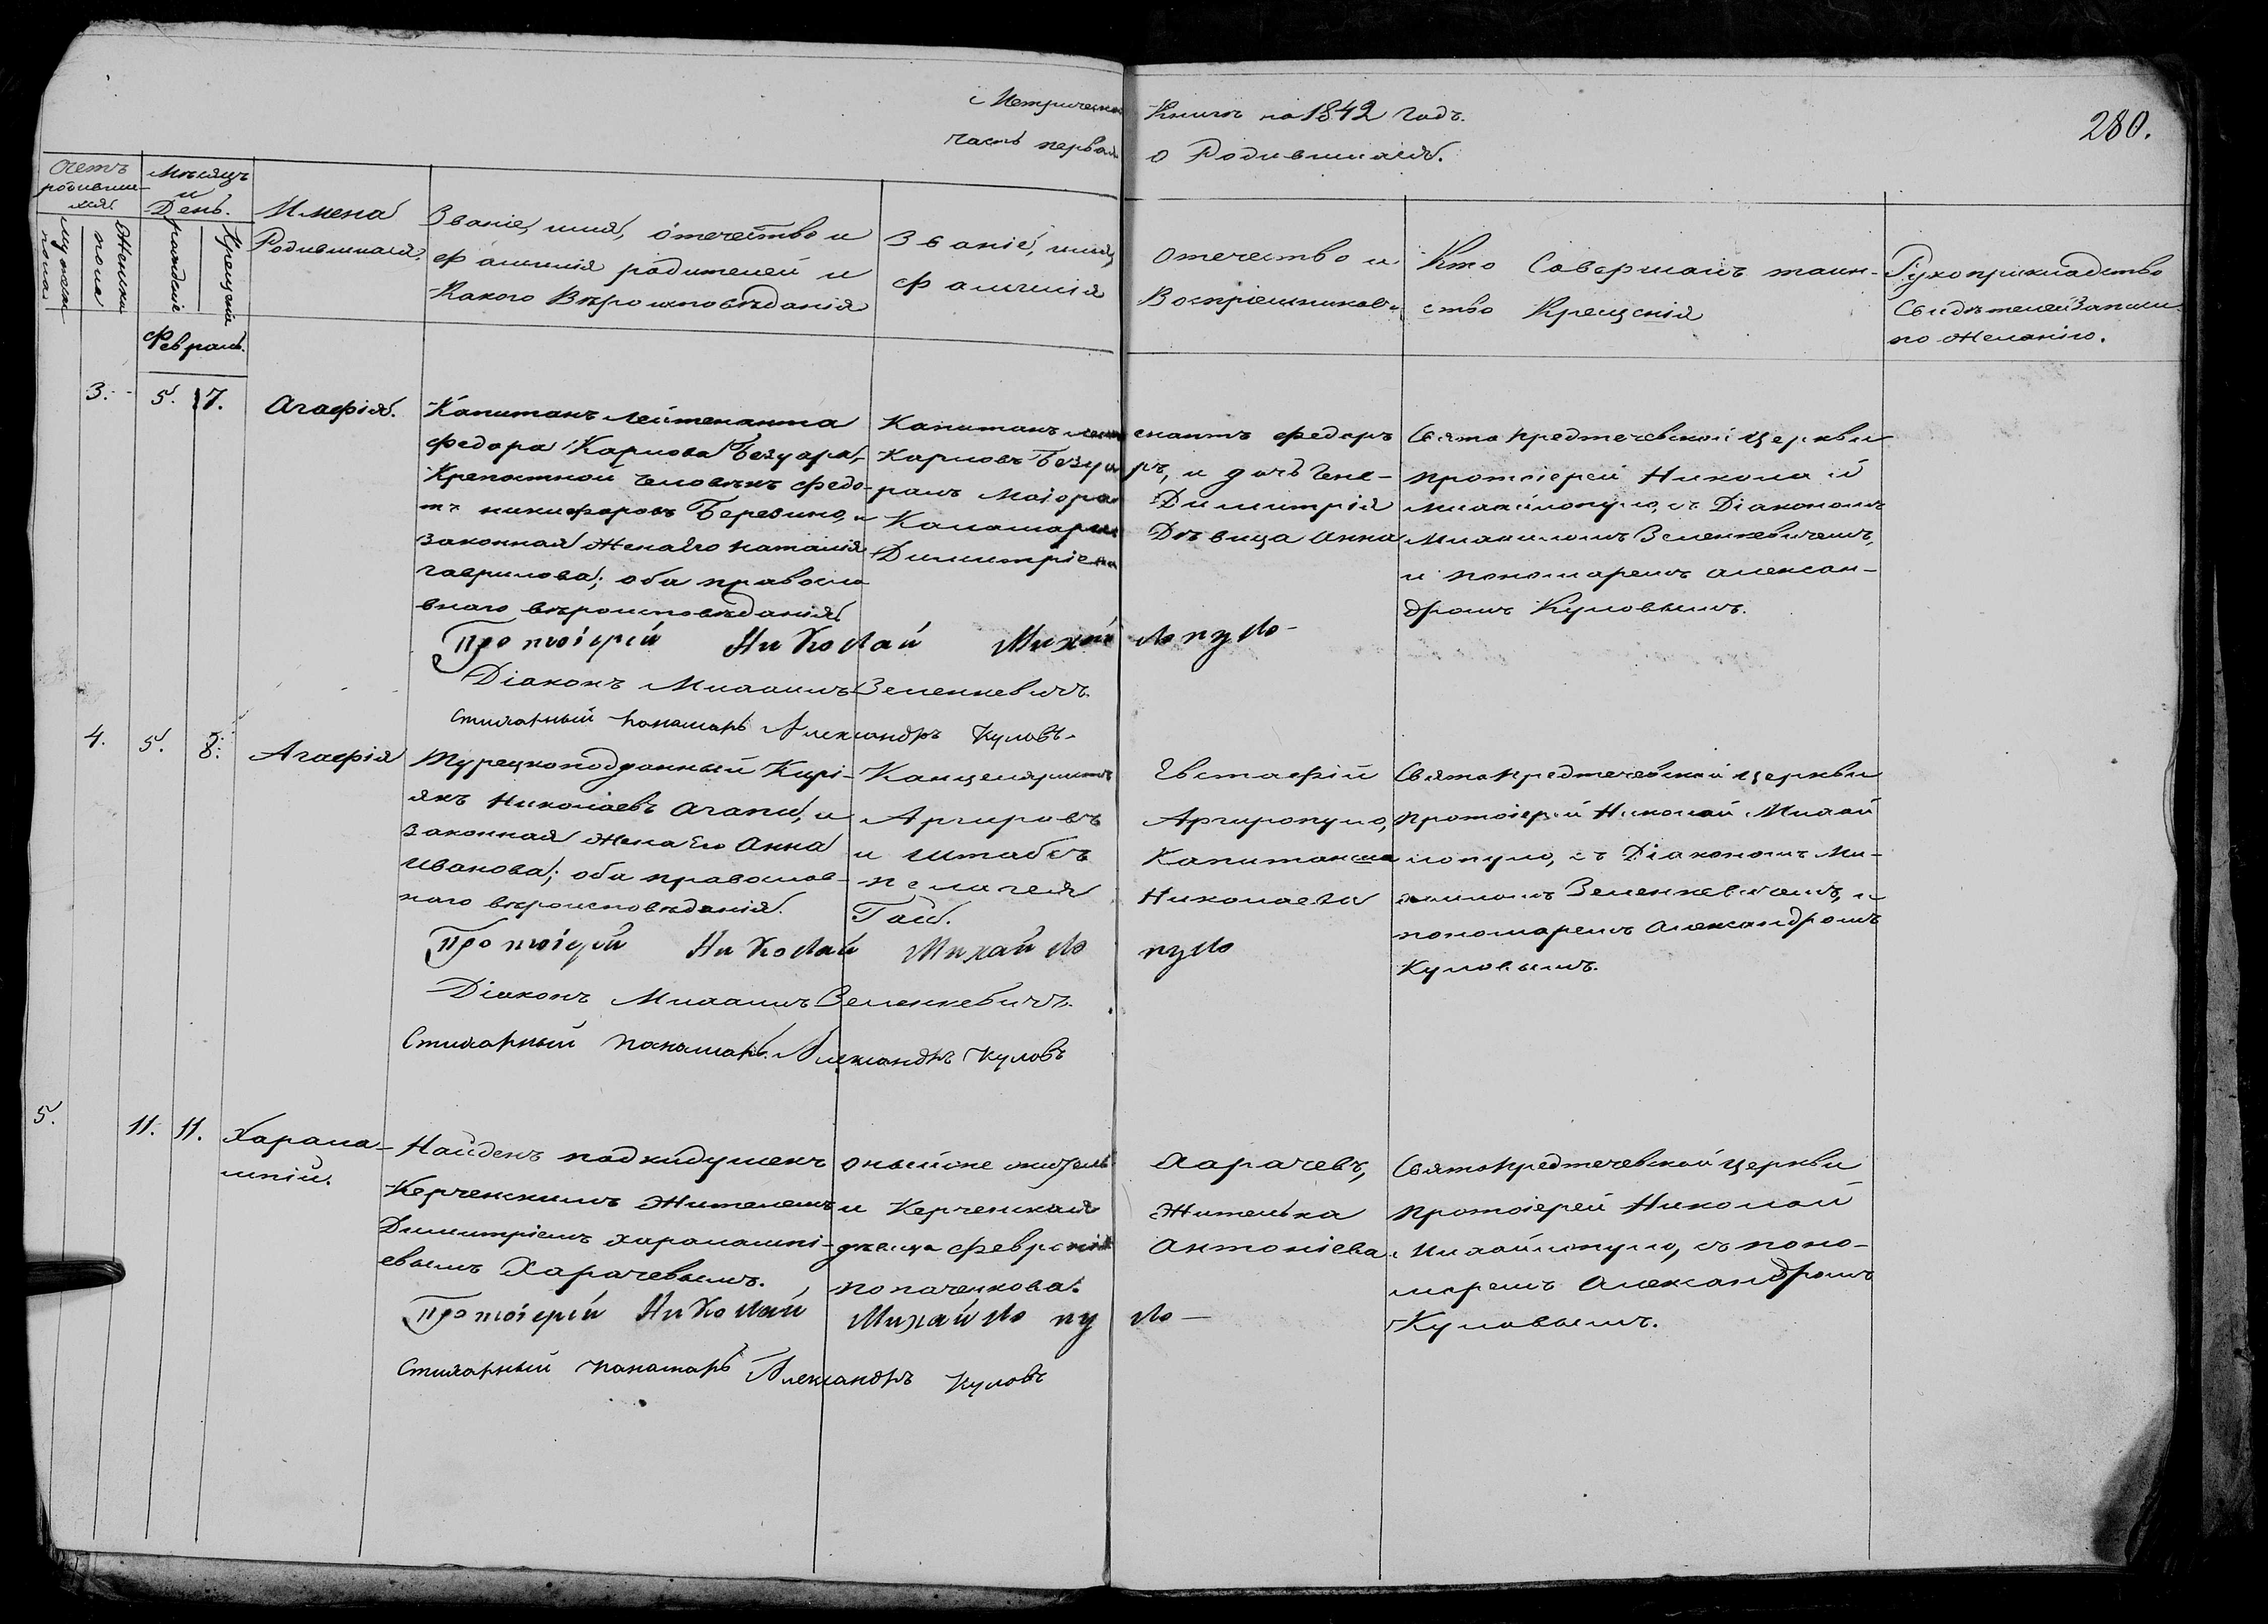 Метрической Книги на 1842 Годъ.
280.
Часть первая о Родившихся.
Счетъ родивших-ся.
мужеска пола
Женска пола
Мѣсяцъ и День.
рожденіе
Крещеніе
Имена Родившихся.
Званіе, имя, отечество и
фамилія родителей и
Какого Вѣроисповѣданія
Званіе, имя, Отечество и
Фамилія Воспріемниковъ
Кто Совершалъ таин-
ство Крещенія
Рукоприкладство
Свидѣтелей Записи
по Желанію.
Февраль.
3. 5. 17. Агафія.
Капитанъ Лейтенанта
Федора Карпова Безуара,
Крепостной человѣкъ Федо-
тъ никифоровъ Березино, и
законная Жена его наталія
гаврилова; оба правосла
внаго вѣроисповѣданія
Капитанъ лейтенантъ федоръ
Карповъ Безуаръ, и дочь Гене-
ралъ Маіора Димитрія
Дѣвица Анна
Димитріева
Свято Предтечевской Церкви
протоіерей Николай
Михайлопуло, съ Діакономъ
Михаиломъ Зеленкевичемъ,
и пономаремъ алексан-
дромъ Куловымъ.
Протоіерей Николай Михайлопуло-
Діаконъ Михаилъ Зеленкевичъ.
Стихарный понамарь Александръ Куловъ-
4. 5. 8. Агафія
Турецкоподданный Кирі-
якъ Николаевъ Агапи, и
законная Жена Его Анна
Иванова; оба православ-
наго вѣроисповѣданія.
Канцеляристъ Евстафій
Аргировъ Аргиропуло,
и Штабсъ Капитанша
пелагея Николаева
Свято Предтечевской Церкви
протоіерей Николай Михай
лопуло, съ Діакономъ Ми-
хаиломъ Зеленкевичемъ, и
пономаремъ Александромъ
Куловымъ.
Протоіерей Николай Михайлопуло
Діаконъ Михаилъ Зеленкевичъ.
Стихарный понамарь Александръ Куловъ
5. 11. 11. Харала-
мпій.
Найденъ подкидушекъ
Керченскимъ Жителемъ
Димитріемъ харалампі-
евымъ Харачевымъ.
житель Харачевъ,
и Керченская Жителька
Февронія Антоніева
Свято Предтечевской Церкви
протоіерей Николай
Михайлопуло, съ поно-
маремъ Александромъ
Куловымъ.
Протоіерей Николай Михайлопуло-
Стихарный понамарь Александръ Куловъ